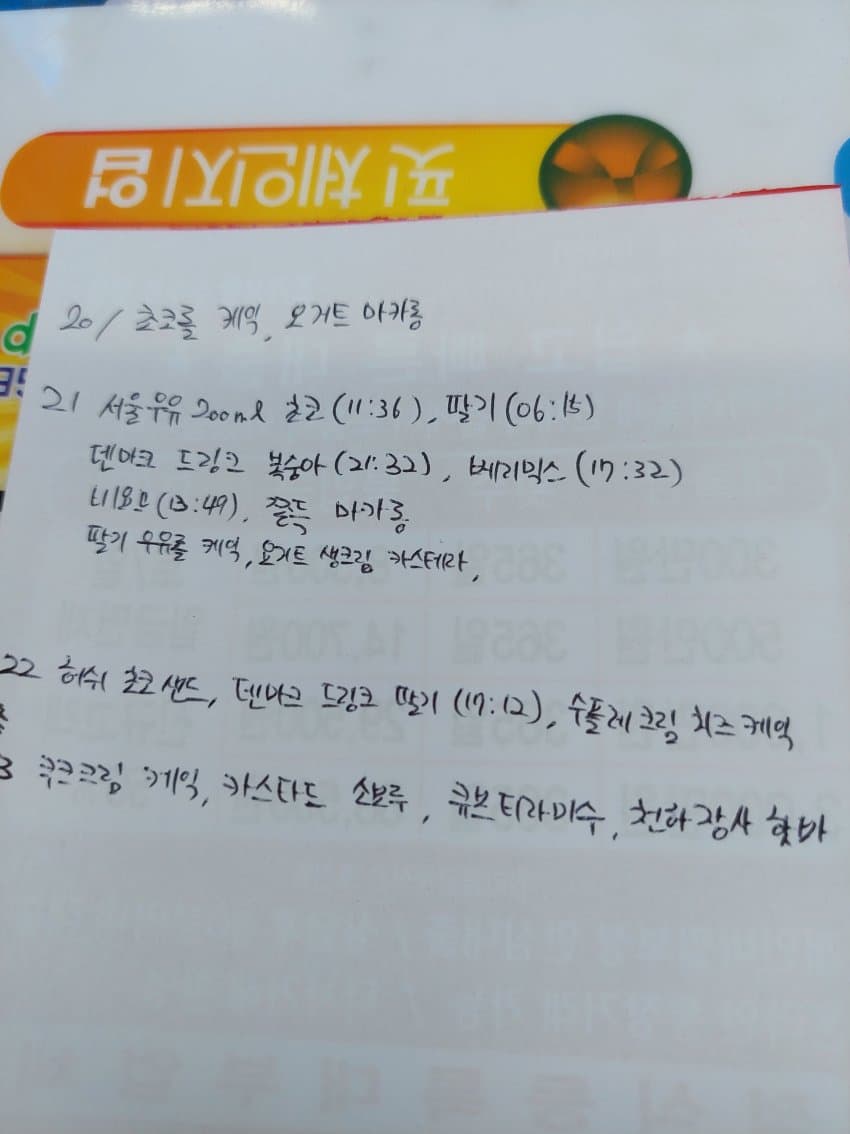 핏 체인지 업
20/ 초코롤 케익, 요거트 마카롱
21 서울우유 200ml 초코 (11:36), 딸기 (06:15)
덴마크 드링크 복숭아 (21:32), 베리믹스 (17:32)
(13:49), 쫄뜩 마카롱
딸기 우유롤 케익, 요거트 생크림 카스테라,
22 허쉬 초코 샌드, 덴마크 드링크 딸기 (17:12), 수플레 크림 치즈 케익
3 쿠크크림 케익, 카스타드 소보루, 큐브 티라미수, 천하장사 핫바
300만원 365일
500만원 365일 14,700원